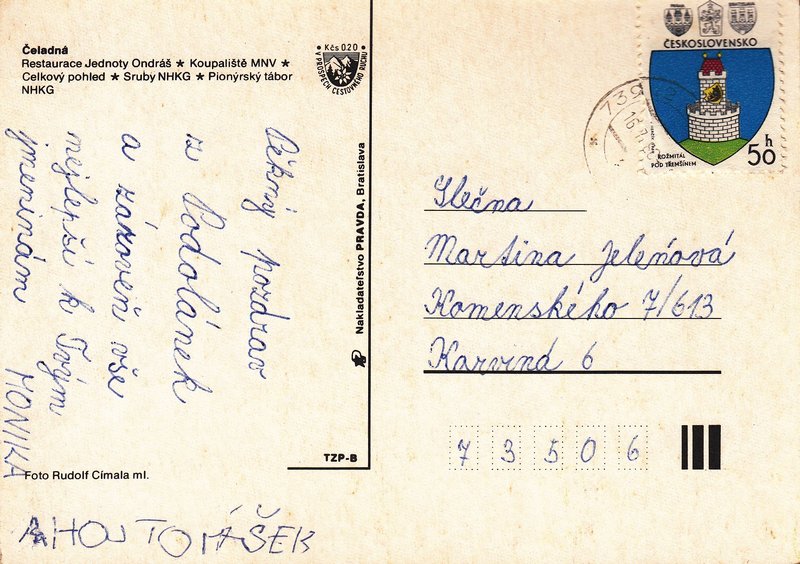 Čeladná
Restaurace Jednoty Ondráš ★ Koupaliště MNV ★
Celkový pohled ★ Sruby NHKG ★ Pionýrský tábor
NHKG
Kčs 0.20
V PROSPĚCH CESTOVNÉHO RUCHU
Pěkný pozdrav
z Podolánek
a zároveň vše
nejlepší k Tvým
jmeninám
MONIKA
AHOJ TOMÁŠEK
Foto Rudolf Címala ml.
TZP-B
Nakladatelstvo PRAVDA, Bratislava
PRAHA
BRATISLAVA
ČESKOSLOVENSKO
ROŽMITÁL
POD TŘEMŠÍNEM
50 h
739
Slečna
Martina Jeleňová
Komenského 7/613
Karviná 6
73506